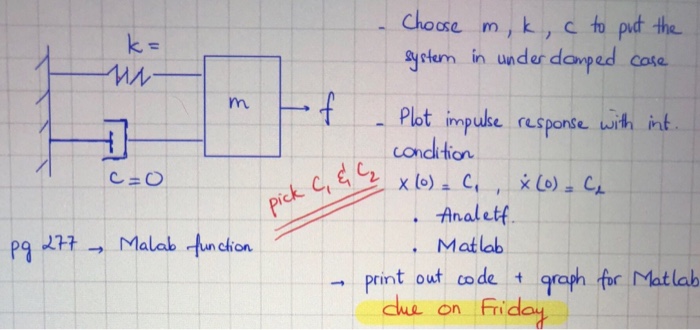 k =
m
f
C = 0
- Choose m, k, c to put the
system in underdamped case
- Plot impulse response with int.
condition
x(0) = C₁ , ẋ(0) = C₂
pick C₁ & C₂
. Analetf.
. Matlab
pg 277 → Malab function
→ print out code + graph for Matlab
due on Friday